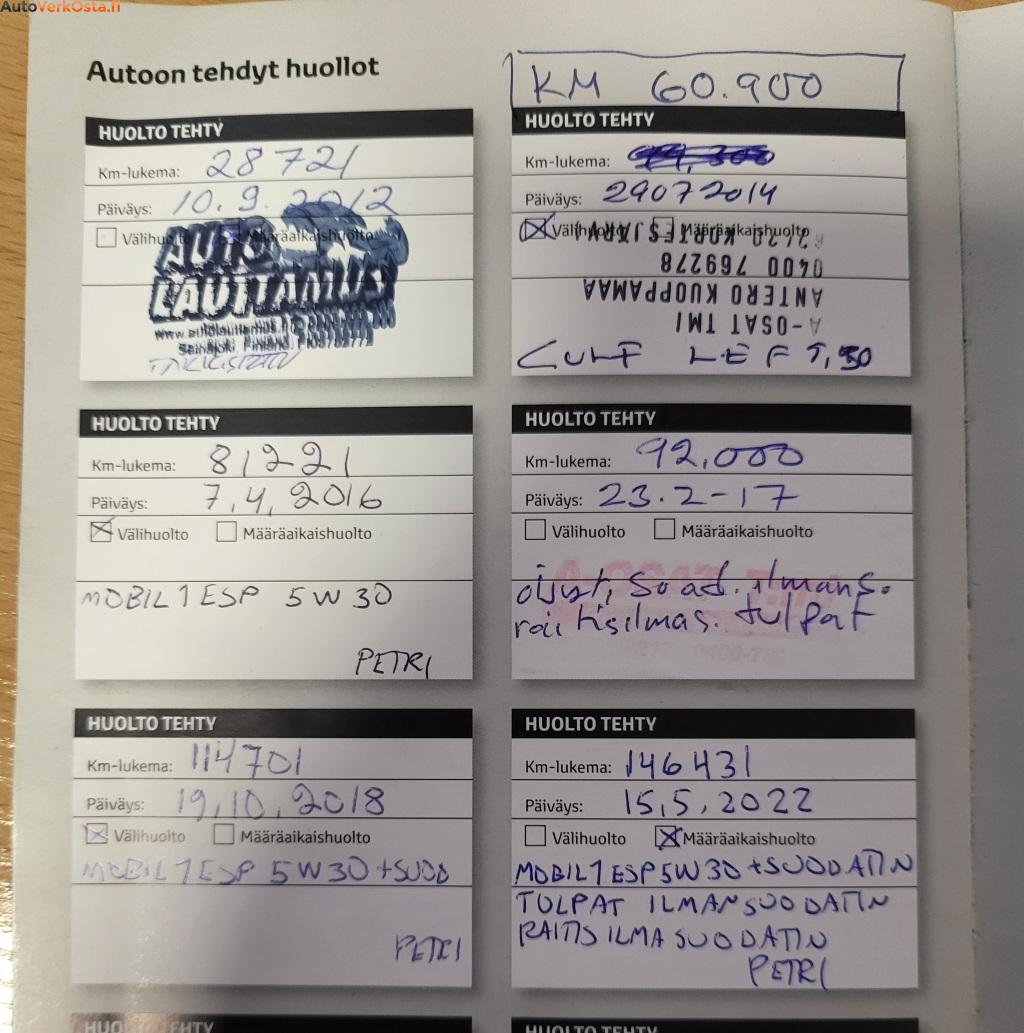 AutoVerkOsta.fi
Autoon tehdyt huollot
KM 60.900
HUOLTO TEHTY
Km-lukema: 28721
Päiväys: 10.9.2012
Välihuolto Määräaikaishuolto
AUTO
LAUTTAMUS
www.autolauttamus.fi
Seinäjoki, Finland
HUOLTO TEHTY
Km-lukema:
Päiväys: 29072014
Välihuolto Määräaikaishuolto
KORTESJÄRVI
0400 769278
ANTERO KUOPPAMAA
A-OSAT TMI
GULF 5,30
HUOLTO TEHTY
Km-lukema: 81221
Päiväys: 7,4,2016
Välihuolto Määräaikaishuolto
MOBIL 1 ESP 5W30
PETRI
HUOLTO TEHTY
Km-lukema: 92,000
Päiväys: 23.2-17
Välihuolto Määräaikaishuolto
öljyt, suod. ilmans.
raitisilmas. tulpat
HUOLTO TEHTY
Km-lukema: 114701
Päiväys: 19,10,2018
Välihuolto Määräaikaishuolto
MOBIL 1 ESP 5W30 +SUOD
PETRI
HUOLTO TEHTY
Km-lukema: 146431
Päiväys: 15,5,2022
Välihuolto Määräaikaishuolto
MOBIL 1 ESP 5W30 +SUODATIN
TULPAT ILMANSUODATIN
RAITIS ILMA SUODATIN
PETRI
HUOLTO TEHTY
HUOLTO TEHTY